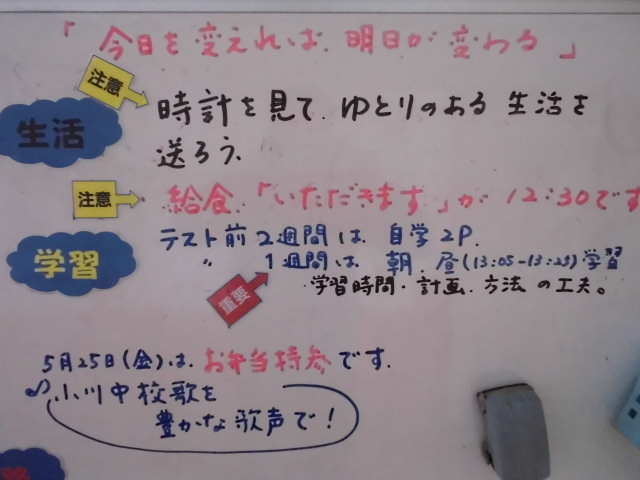 「今日を変えれば、明日が変わる」
注意
時計を見て、ゆとりのある生活を
生活
送ろう。
注意
給食、「いただきます」が12:30です
テスト前2週間は、自学2P.
学習
〃 1週間は、朝、昼(13:05-13:25)学習
重要
学習時間・計画、方法の工夫。
5月25日(金)は、お弁当持参です。
小川中校歌を
豊かな歌声で!